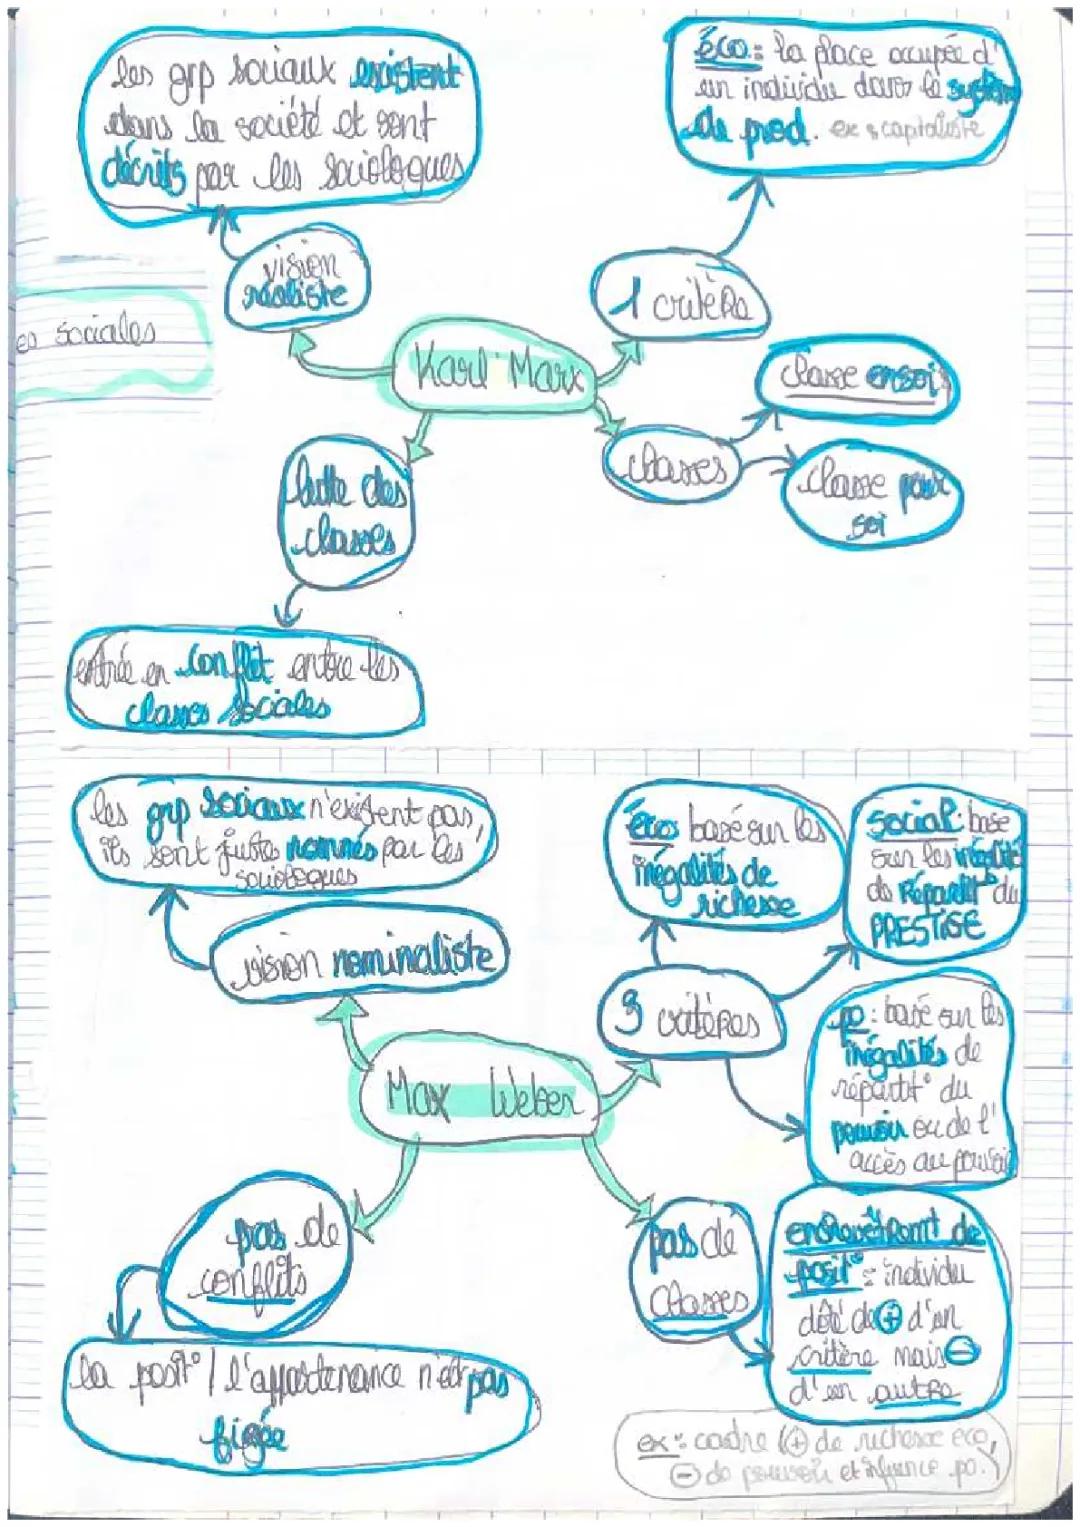 les grp sociaux existent
dans la société et sont
décrits par les sociologues
éco : la place occupée d'
un individu dans le système
de prod. ex : capitaliste
vision
réaliste
1 critère
es sociales
Karl Marx
classe en soi
classes
classe pour
soi
lutte des
classes
entrée en conflit entre les
classes sociales
les grp sociaux n'existent pas,
ils sont justes nommés par les
sociologues
éco : basé sur les
inégalités de
richesse
social : base
sur les inégalité
de répartit° du
PRESTIGE
vision nominaliste
3 critères
po : basé sur les
inégalités de
répartit° du
pouvoir ou de l'
accès au pouvoir
Max Weber
pas de
conflits
pas de
classes
posit° : individu
dôté de + d'un
critère mais -
d'un autre
la posit° / l'appartenance n'est pas
figée
ex : cadre (+ de richesse eco,
- de pouvoir et influence po.)